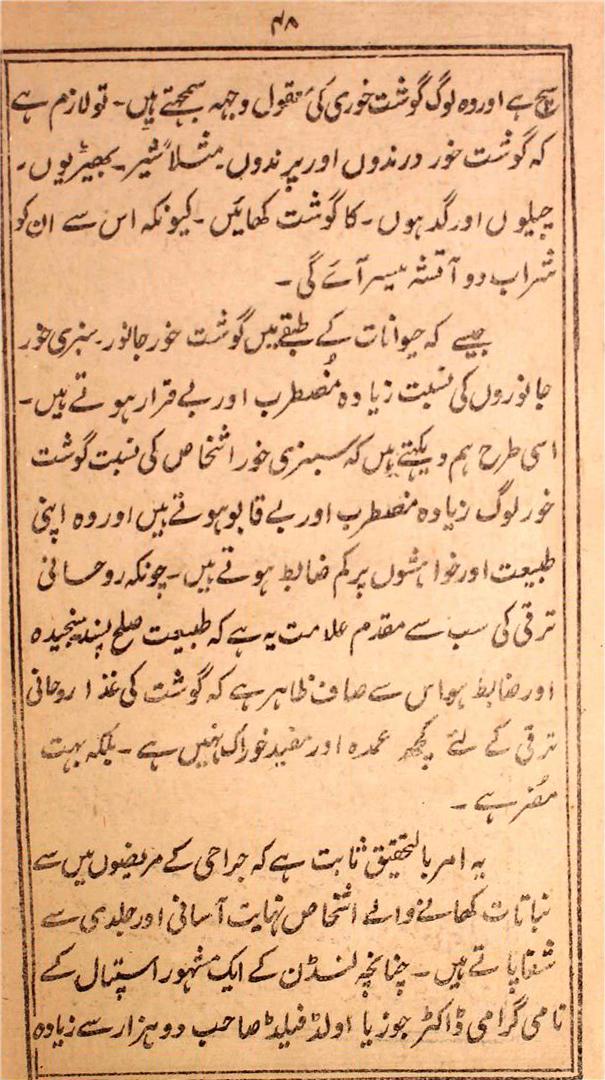 ۴۸
سچ ہے اور وہ لوگ گوشت خوری کی معقول وجہہ سمجھتے ہیں۔ تو لازم ہے
کہ گوشت خور درندوں اور پرندوں۔ مثلاً شیر۔ بھیڑیوں۔
چیلوں اور گدہوں۔ کا گوشت کھائیں۔ کیونکہ اس سے ان کو
شراب دو آتشہ میسر آئے گی۔
جیسے کہ حیوانات کے طبقے میں گوشت خور جانور۔ سبزی خور
جانوروں کی نسبت زیادہ مُضطرب اور بے قرار ہوتے ہیں۔
اسی طرح ہم دیکہتے ہیں کہ سبزی خور اشخاص کی نسبت گوشت
خور لوگ زیادہ مضطرب اور بے قابو ہوتے ہیں اور وہ اپنی
طبیعت اور خواہشوں پر کم ضابط ہوتے ہیں۔ چونکہ روحانی
ترقی کی سب سے مقدم علامت یہ ہے کہ طبیعت صلح پسند سنجیدہ
اور ضابط ہو اس سے صاف ظاہر ہے کہ گوشت کی غذا روحانی
ترقی کے لئے کچھ عمدہ اور مفید خوراک نہیں ہے۔ بلکہ بہت
مُضر ہے۔
یہ امر بالتحقیق ثابت ہے کہ جراحی کے مریضوں میں سے
نباتات کھانے والے اشخاص نہایت آسانی اور جلدی سے
شفا پاتے ہیں۔ چنانچہ لنڈن کے ایک مشہور اسپتال کے
نامی گرامی ڈاکٹر جوزیا اولڈ فیلڈ صاحب دو ہزار سے زیادہ